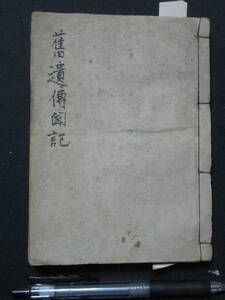 舊遺傳聞記